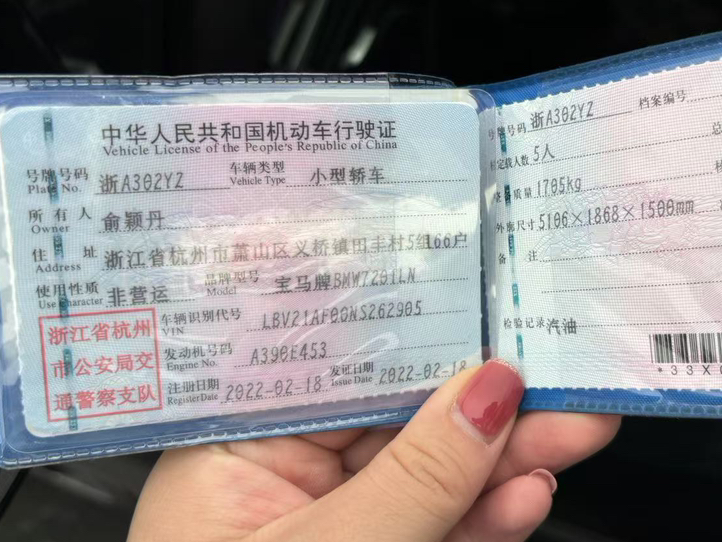 中华人民共和国机动车行驶证
Vehicle License of the People's Republic of China
号牌号码 浙A302YZ 车辆类型 小型轿车
Plate No. Vehicle Type
所有人 俞颖丹
Owner
住址 浙江省杭州市萧山区义桥镇田丰村5组166户
Address
使用性质 非营运 品牌型号 宝马牌BMW7201LN
Use Character Model
浙江省杭州
市公安局交
通警察支队
车辆识别代号 LBV21AF00NS262905
VIN
发动机号码 A390E453
Engine No.
注册日期 2022-02-18 发证日期 2022-02-18
Register Date Issue Date
号牌号码 浙A302YZ 档案编号
定载人数 5人 总
质量 1705kg
外廓尺寸 5106×1868×1500mm
备注
检验记录 汽油
*33X